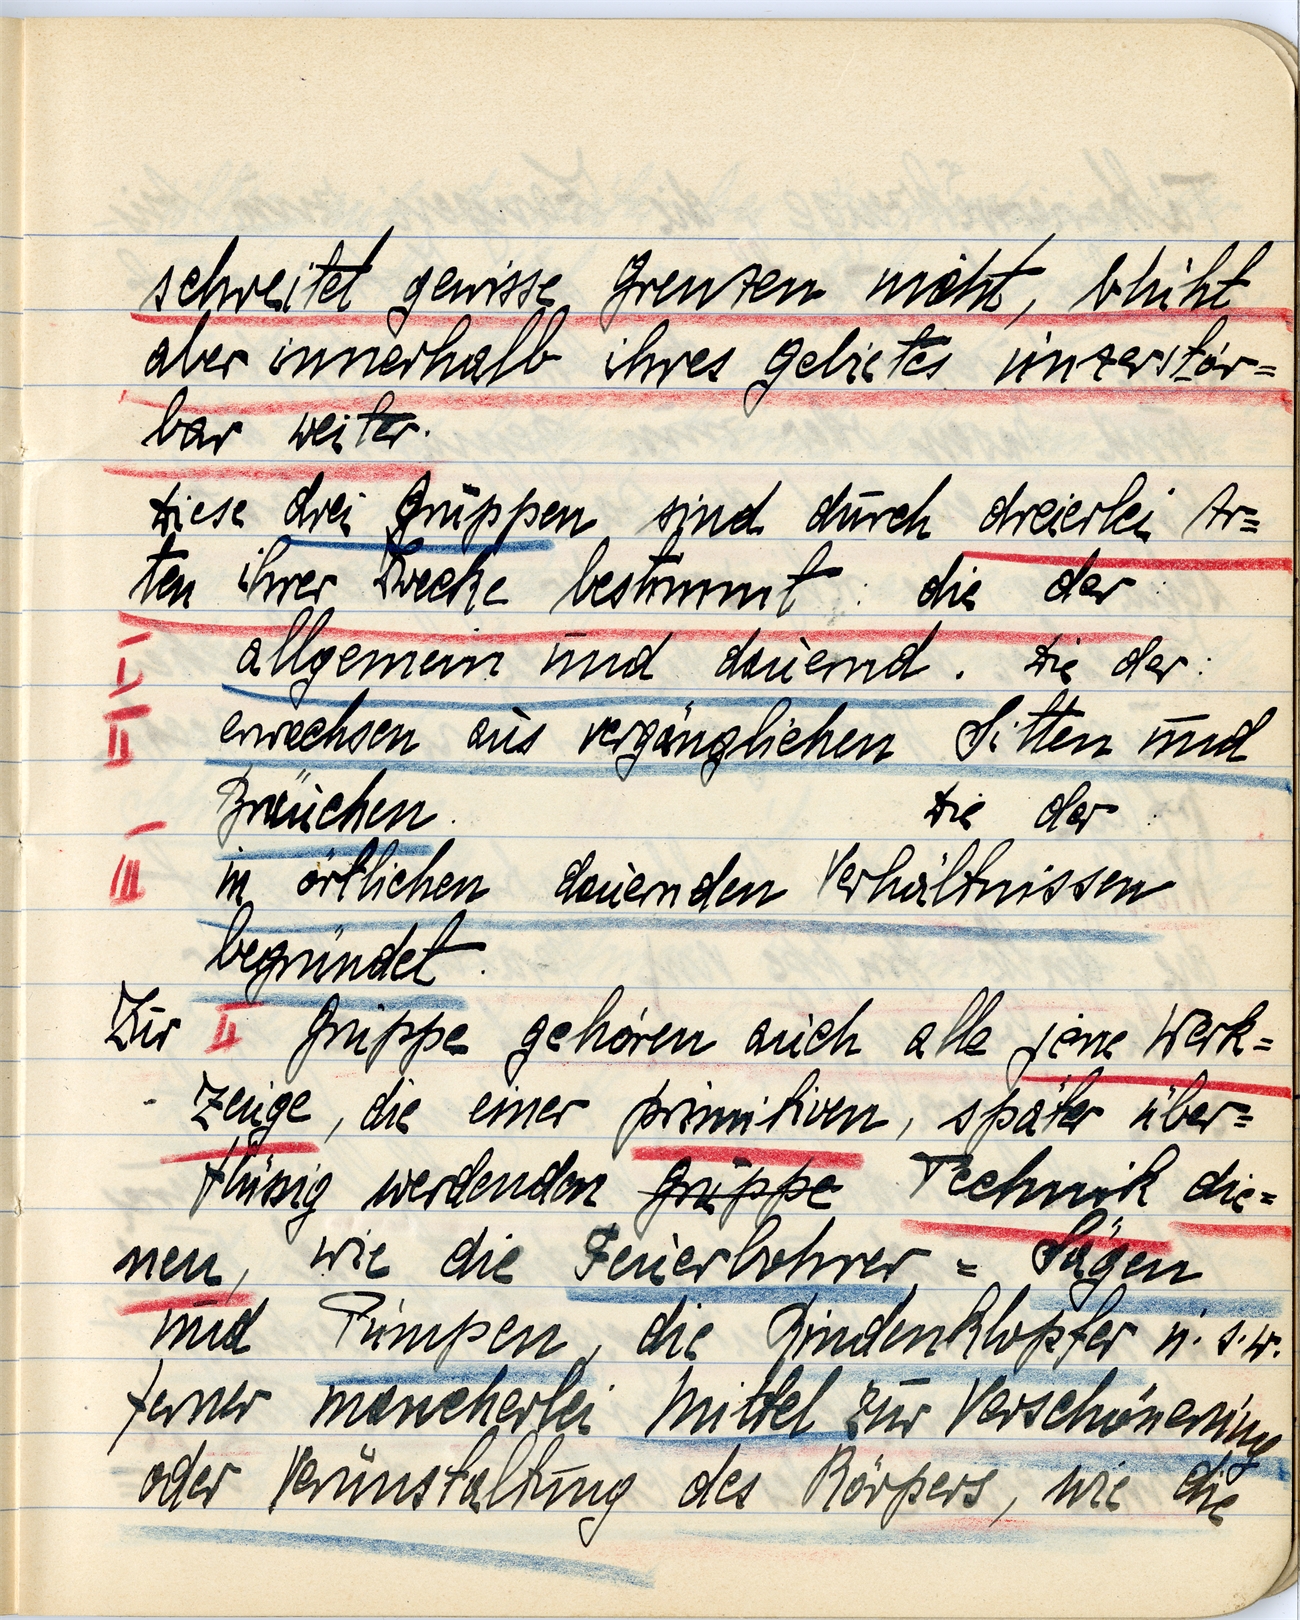 schreitet gewisse Grenzen nicht, blüht
aber innerhalb ihres Gebietes unzerstör=
bar weiter.
Diese drei Gruppen sind durch dreierlei Ar=
ten ihrer Zwecke bestimmt : die der :
I allgemein und dauernd . Die der :
II erwachsen aus vergänglichen Sitten und
Bräuchen . Die der :
III in örtlichen dauernden Verhältnissen
begründet .
Zur II Gruppe gehören auch alle jene Werk=
zeuge , die einer primitiven , später über=
flüssig werdenden Gruppe Technik die=
nen , wie die Feuerbohrer = Sägen
und Pumpen , die Rindenklopfer u. s. w.
ferner mancherlei Mittel zur Verschönerung
oder Verunstaltung des Körpers , wie die